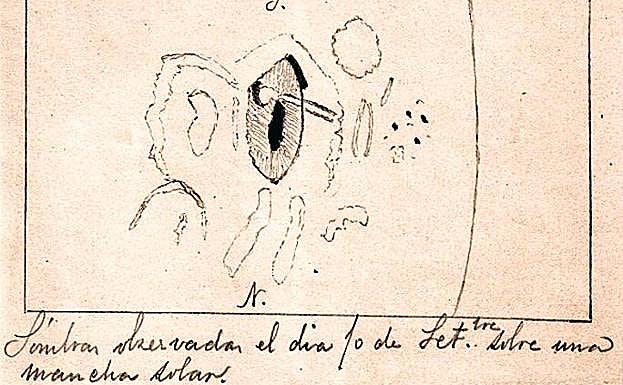 S.
N.
Sombras observadas el dia 10 de Set.tre sobre una
mancha solar.